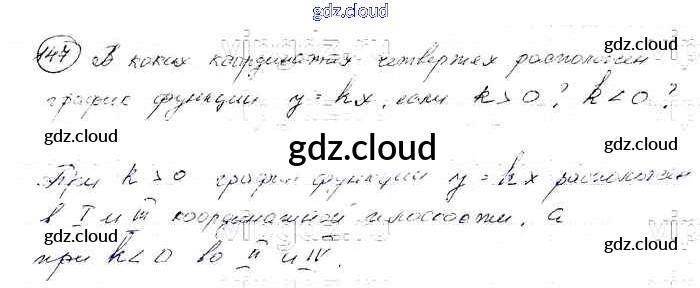 gdz.cloud
147 В каких координатных четвертях расположен
gdz.cloud
график функции y = kx, если k > 0? k < 0?
gdz.cloud
gdz.cloud
gdz.cloud
При k > 0 график функции y = kx расположен
в I и III координатной плоскости, а
gdz.cloud
gdz.cloud
при k < 0 во II и IV.